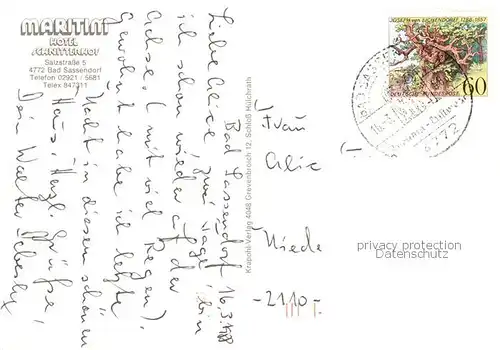 MARITIM
HOTEL
SCHNITTERHOF
Salzstraße 5
4772 Bad Sassendorf
Telefon 02921 / 5681
Telex 847311
Bad Sassendorf 16.3.88
Liebe Alice, zwei Tage bin
ich schon wieder auf der
Achse (mit viel Regen).
Gewohnt habe ich letzte
Nacht in diesem schönen
Haus. Herzl. Grüße
Dein Walter
Krapohl-Verlag 4048 Grevenbroich 12, Schloß Hülchrath
JOSEPH VON EICHENDORFF 1788-1857
DEUTSCHE BUNDESPOST
60
4772
Frau
Alic
Niede
-2110-
privacy protection
Datenschutz